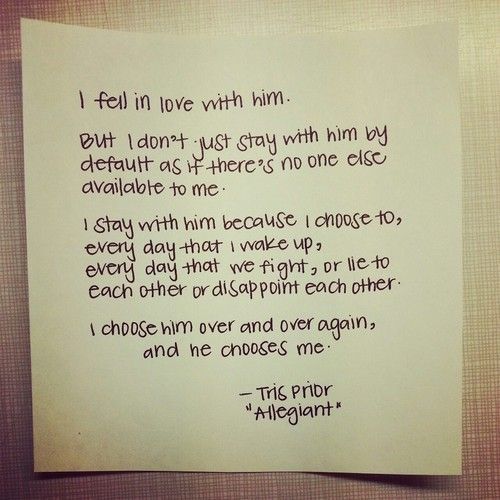 I fell in love with him.
But I don't just stay with him by
default as if there's no one else
available to me.
I stay with him because I choose to,
every day that I wake up,
every day that we fight, or lie to
each other or disappoint each other.
I choose him over and over again,
and he chooses me.
– Tris Prior
"Allegiant"